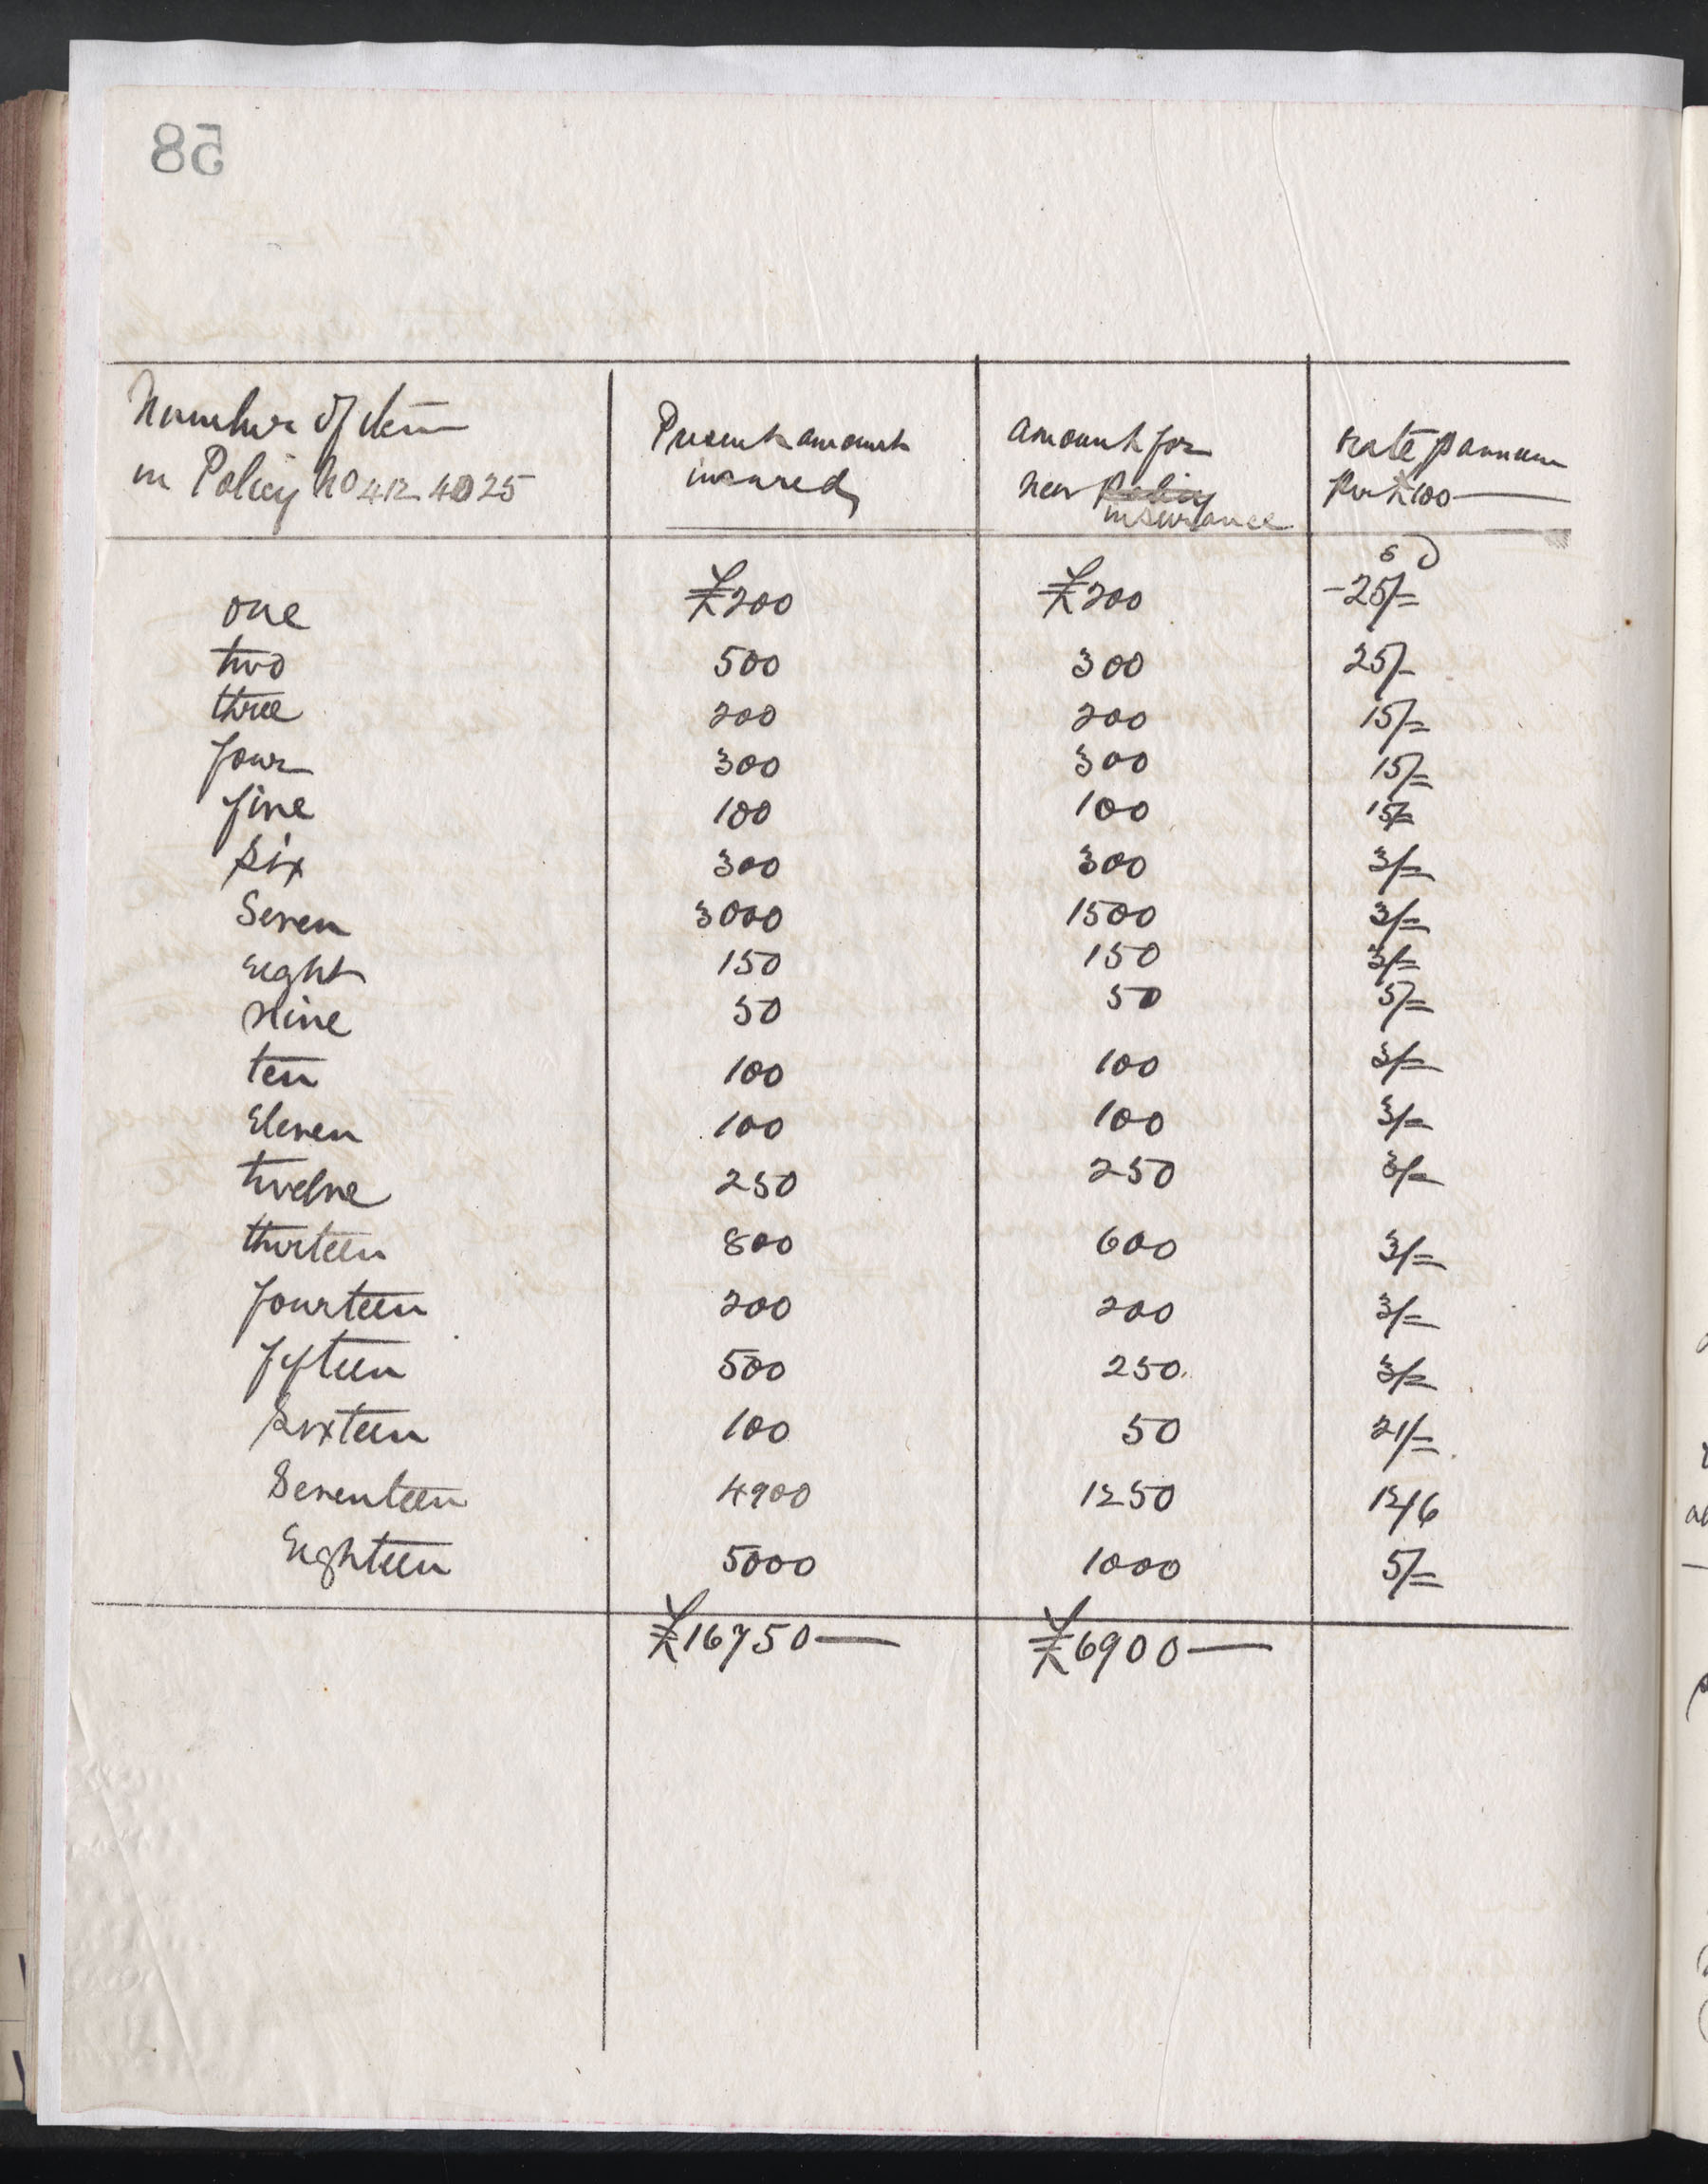 58
Number of Item in Policy No 412 4025 | Present amount insured | amount for new ~~Policy~~ insurance | rate p annum Per £100
s d
one £200 £200 -25/=
two 500 300 25/-
three 200 200 15/=
four 300 300 15/=
five 100 100 15/=
Six 300 300 3/=
Seven 3000 1500 3/=
Eight 150 150 3/=
Nine 50 50 5/=
ten 100 100 3/=
Eleven 100 100 3/=
twelve 250 250 3/=
thirteen 800 600 3/=
fourteen 200 200 3/=
fifteen 500 250 3/=
Sixteen 100 50 21/=
Seventeen 4900 1250 12/6
Eighteen 5000 1000 5/=
£16750— £6900—